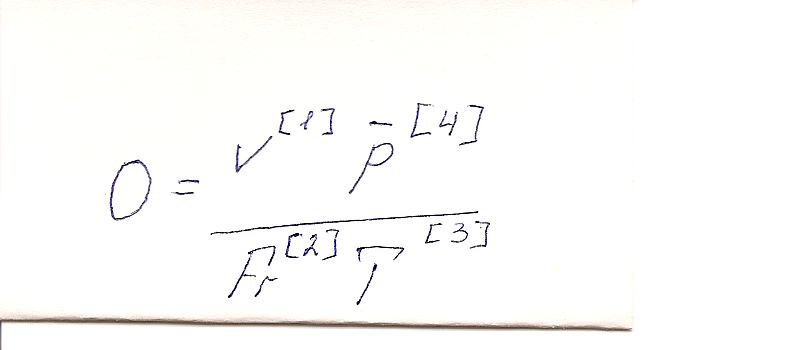 O = v[1] p̄[4]
F̄r[2] T̄[3]